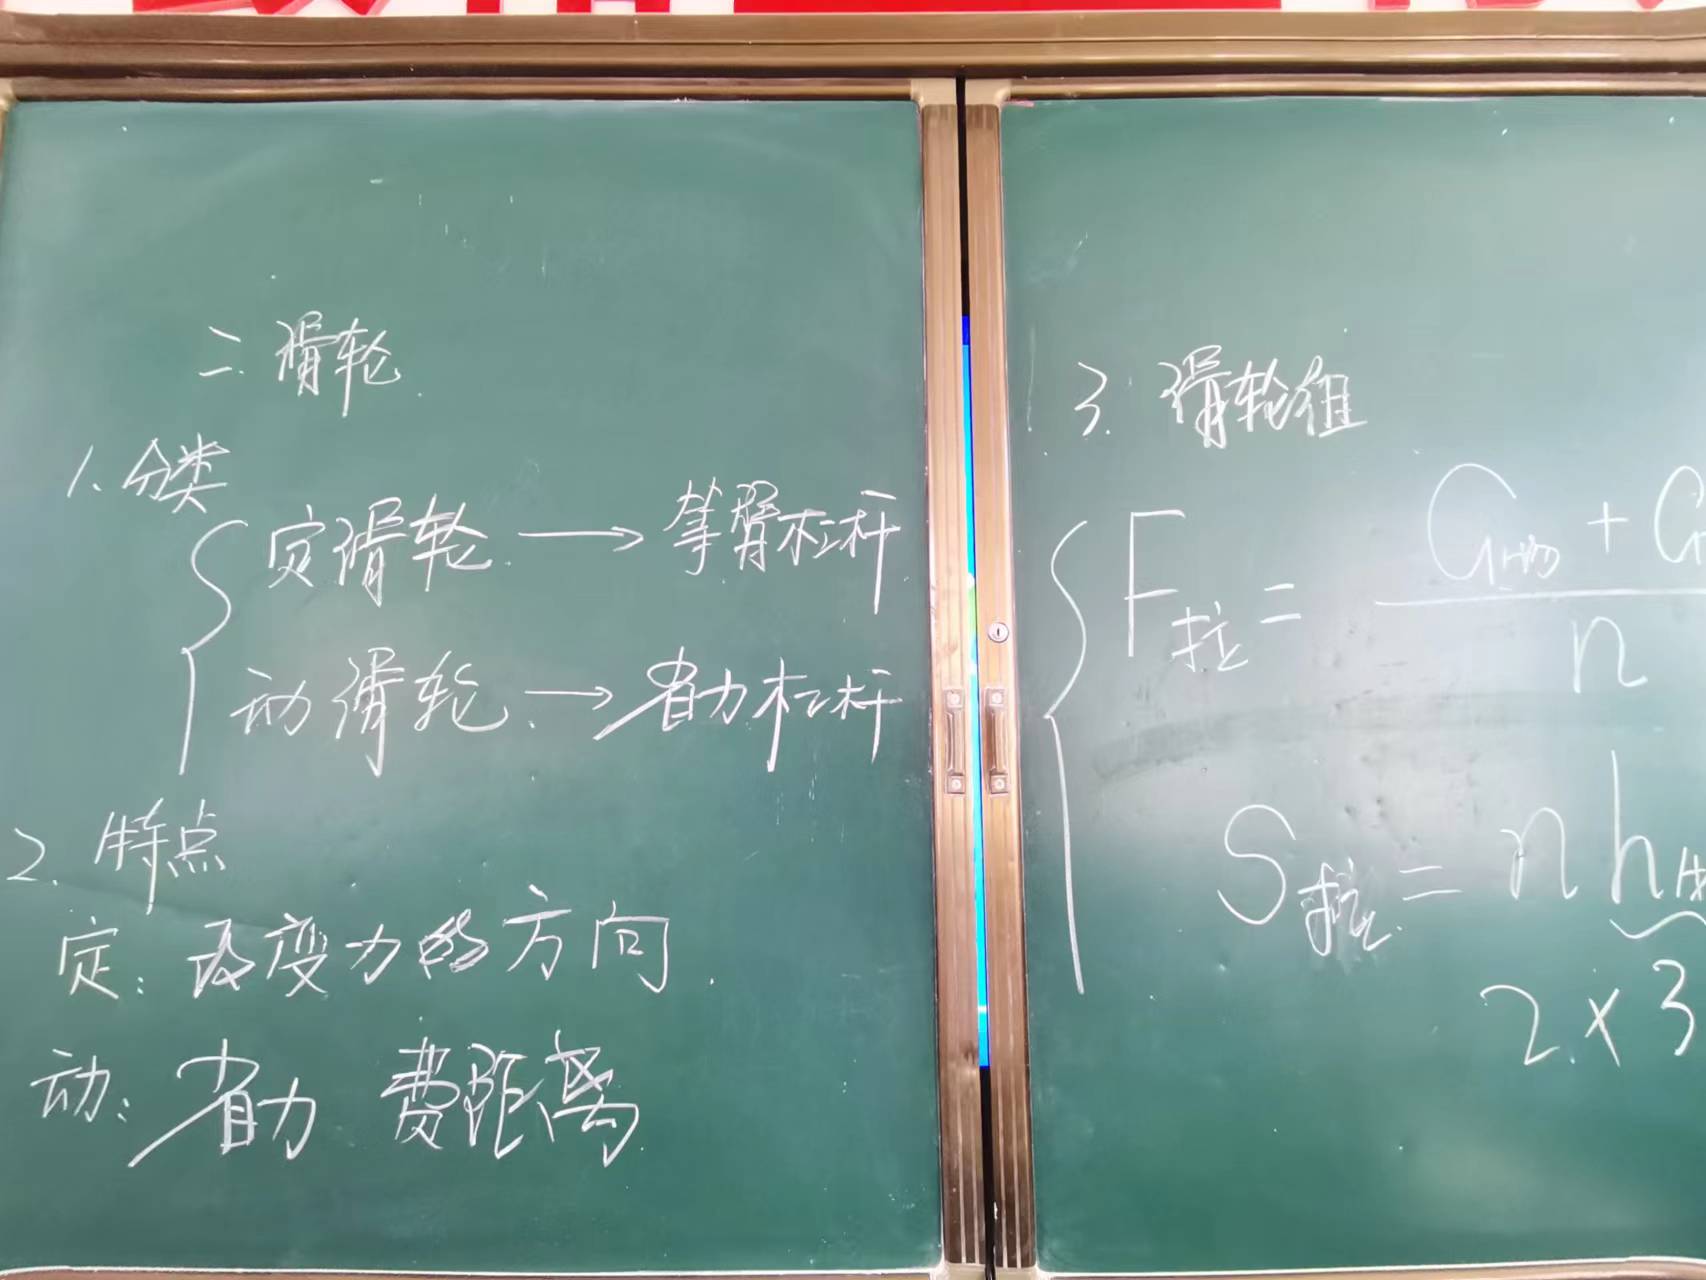 二.滑轮.
1.分类
定滑轮.→等臂杠杆.
动滑轮.→省力杠杆
2.特点
定:改变力的方向.
动:省力 费距离.
3.滑轮组
F拉=(G物+G)/n
S拉=nh
2×3